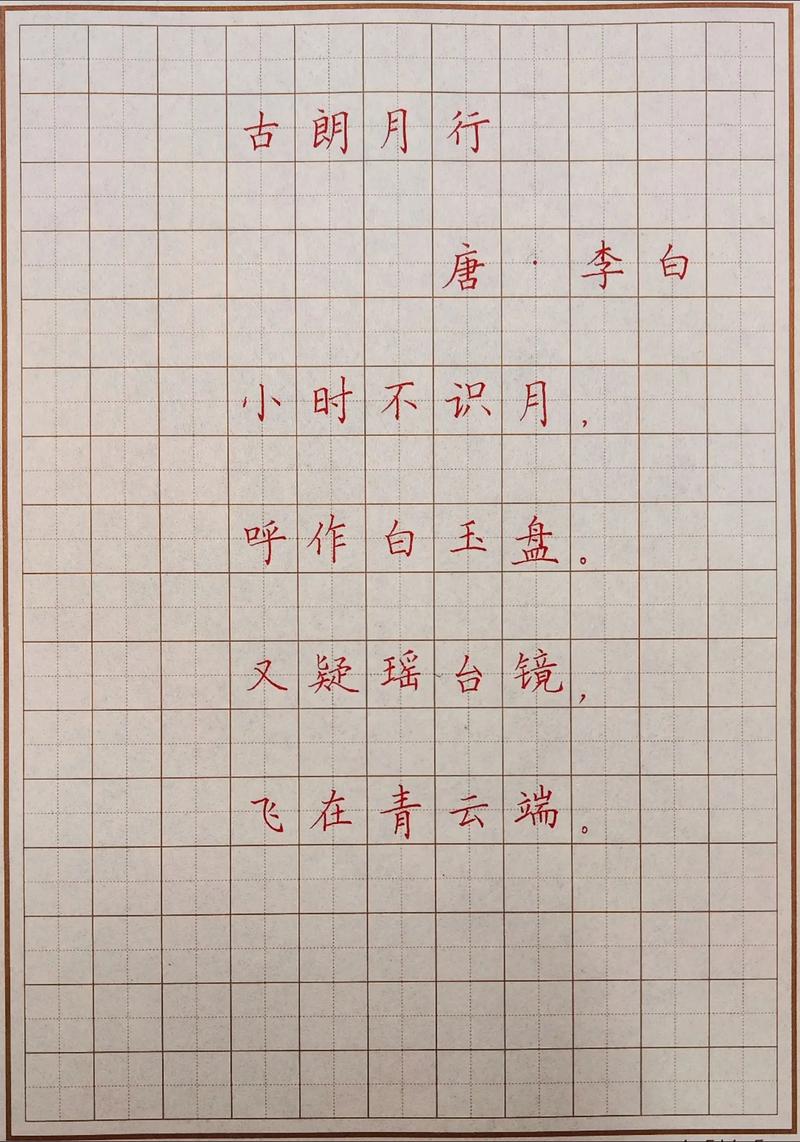 古朗月行
唐·李白
小时不识月，
呼作白玉盘。
又疑瑶台镜，
飞在青云端。